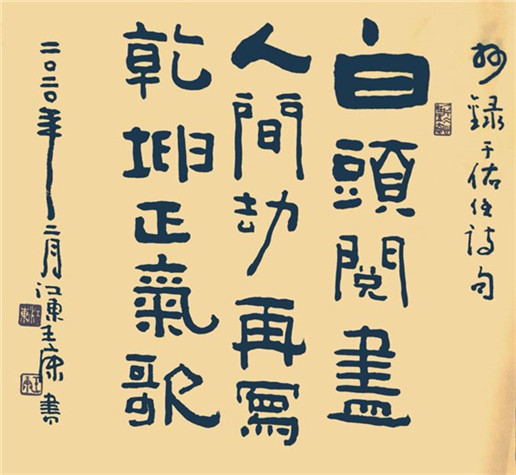 抄録于佑任诗句
白頭閱盡
人間劫再寫
乾坤正氣歌
二〇二〇年二月江東王康書